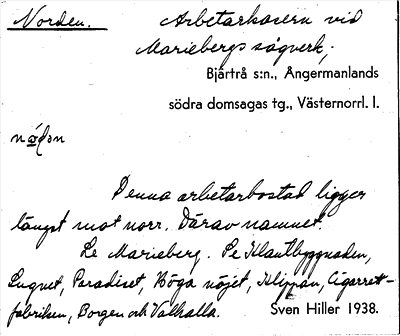 Norden.
Arbetarkasern vid
Mariebergs sågverk,
Bjärtrå s:n., Ångermanlands
södra domsagas tg., Västernorrl. l.
Denna arbetarbostad ligger
längst mot norr. Därav namnet.
Le Marieberg. Pe Klanthyggnaden,
Lugnet, Paradiset, Höga nöjet, Klippan, Cigarrett-
fabriken, Borgen och Valhalla.
Sven Hiller 1938.